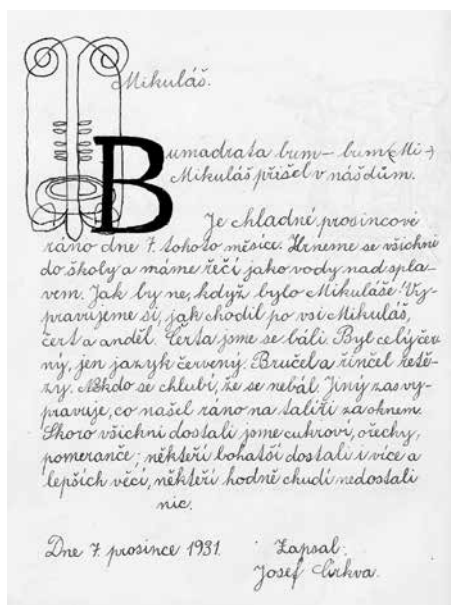 Mikuláš.
Bumadrata bum – bum (Mi-)
Mikuláš přišel v náš dům.
Je chladné prosincové
ráno dne 7. tohoto měsíce. Hrneme se všichni
do školy a máme řečí jako vody nad spla-
vem. Jak by ne, když bylo Mikuláše! Vy-
pravujeme si, jak chodil po vsi Mikuláš,
čert a anděl. Čerta jsme se báli. Byl celý čer-
ný, jen jazyk červený. Bručel a řinčel řetě-
zy. Někdo se chlubí, že se nebál. Jiný zas vy-
pravuje, co našel ráno na talíři za oknem.
Skoro všichni dostali jsme cukroví, ořechy,
pomeranče; někteří bohatší dostali i více a
lepších věcí, někteří hodně chudí nedostali
nic.
Dne 7. prosince 1931. Zapsal:
Josef Církva.